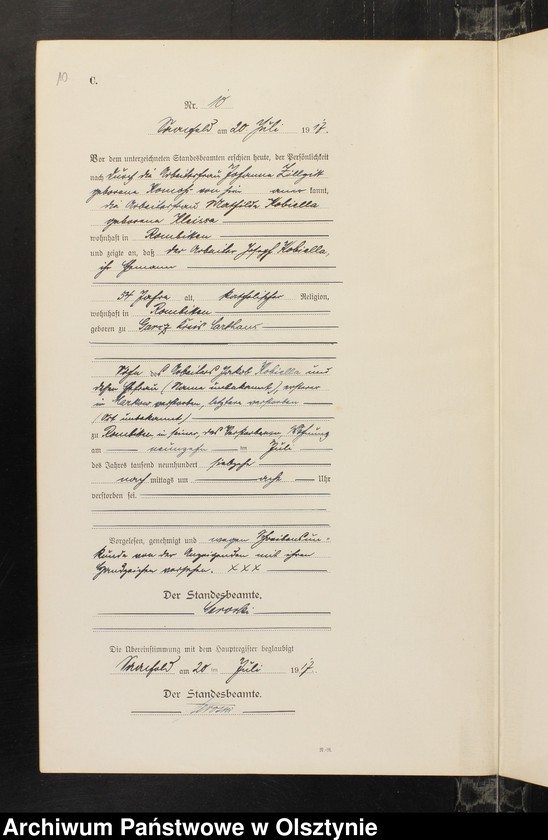 10
C.
Nr. 10
Saalfeld am 20. Juli 1917.
Vor dem unterzeichneten Standesbeamten erschien heute, der Persönlichkeit
nach durch die Arbeiterfrau Johanna
geborene von hier kannt,
die Arbeiterfrau Mathilde Kobiella
geborene
wohnhaft in Rombitten
und zeigte an, daß der Arbeiter Josef Kobiella,
ihr Ehemann
54 Jahre alt, katholischer Religion,
wohnhaft in Rombitten
geboren zu Kreis Carthaus
Sohn des Arbeiters Jakob Kobiella und
dessen Ehefrau (Name unbekannt), ersterer
in verstorben, letztere verstorben
(Ort unbekannt)
zu Rombitten in seiner, des Verstorbenen Wohnung
am neunzehn ten Juli
des Jahres tausend neunhundert siebzehn
nach mittags um acht Uhr
verstorben sei.
Vorgelesen, genehmigt und wegen Schreibensun-
kunde von der Anzeigenden mit ihren
Handzeichen versehen. XXX
Der Standesbeamte.
Die Übereinstimmung mit dem Hauptregister beglaubigt
Saalfeld am 20 ten Juli 1917.
Der Standesbeamte.
Archiwum Państwowe w Olsztynie